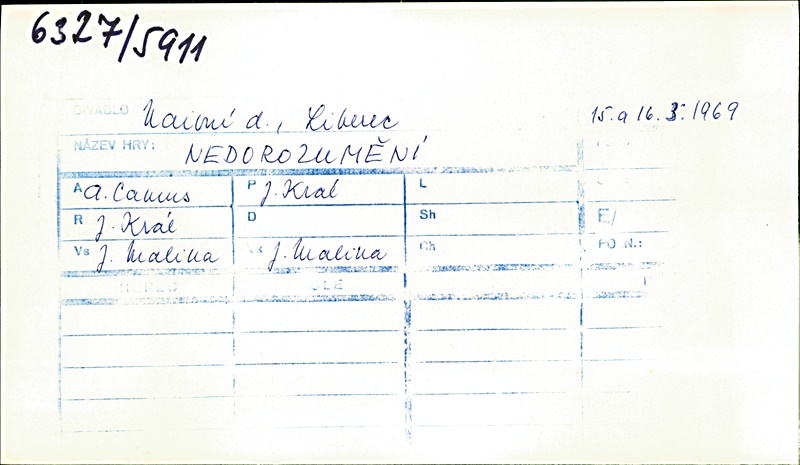 6327/5911
DIVADLO Naivní d., Liberec 15. a 16. 3. 1969
NÁZEV HRY: NEDOROZUMĚNÍ
A A. Camus P J. Král L
R J. Král D Sh E/
Vs J. Malina J. Malina Ch PO N.:
HEREC